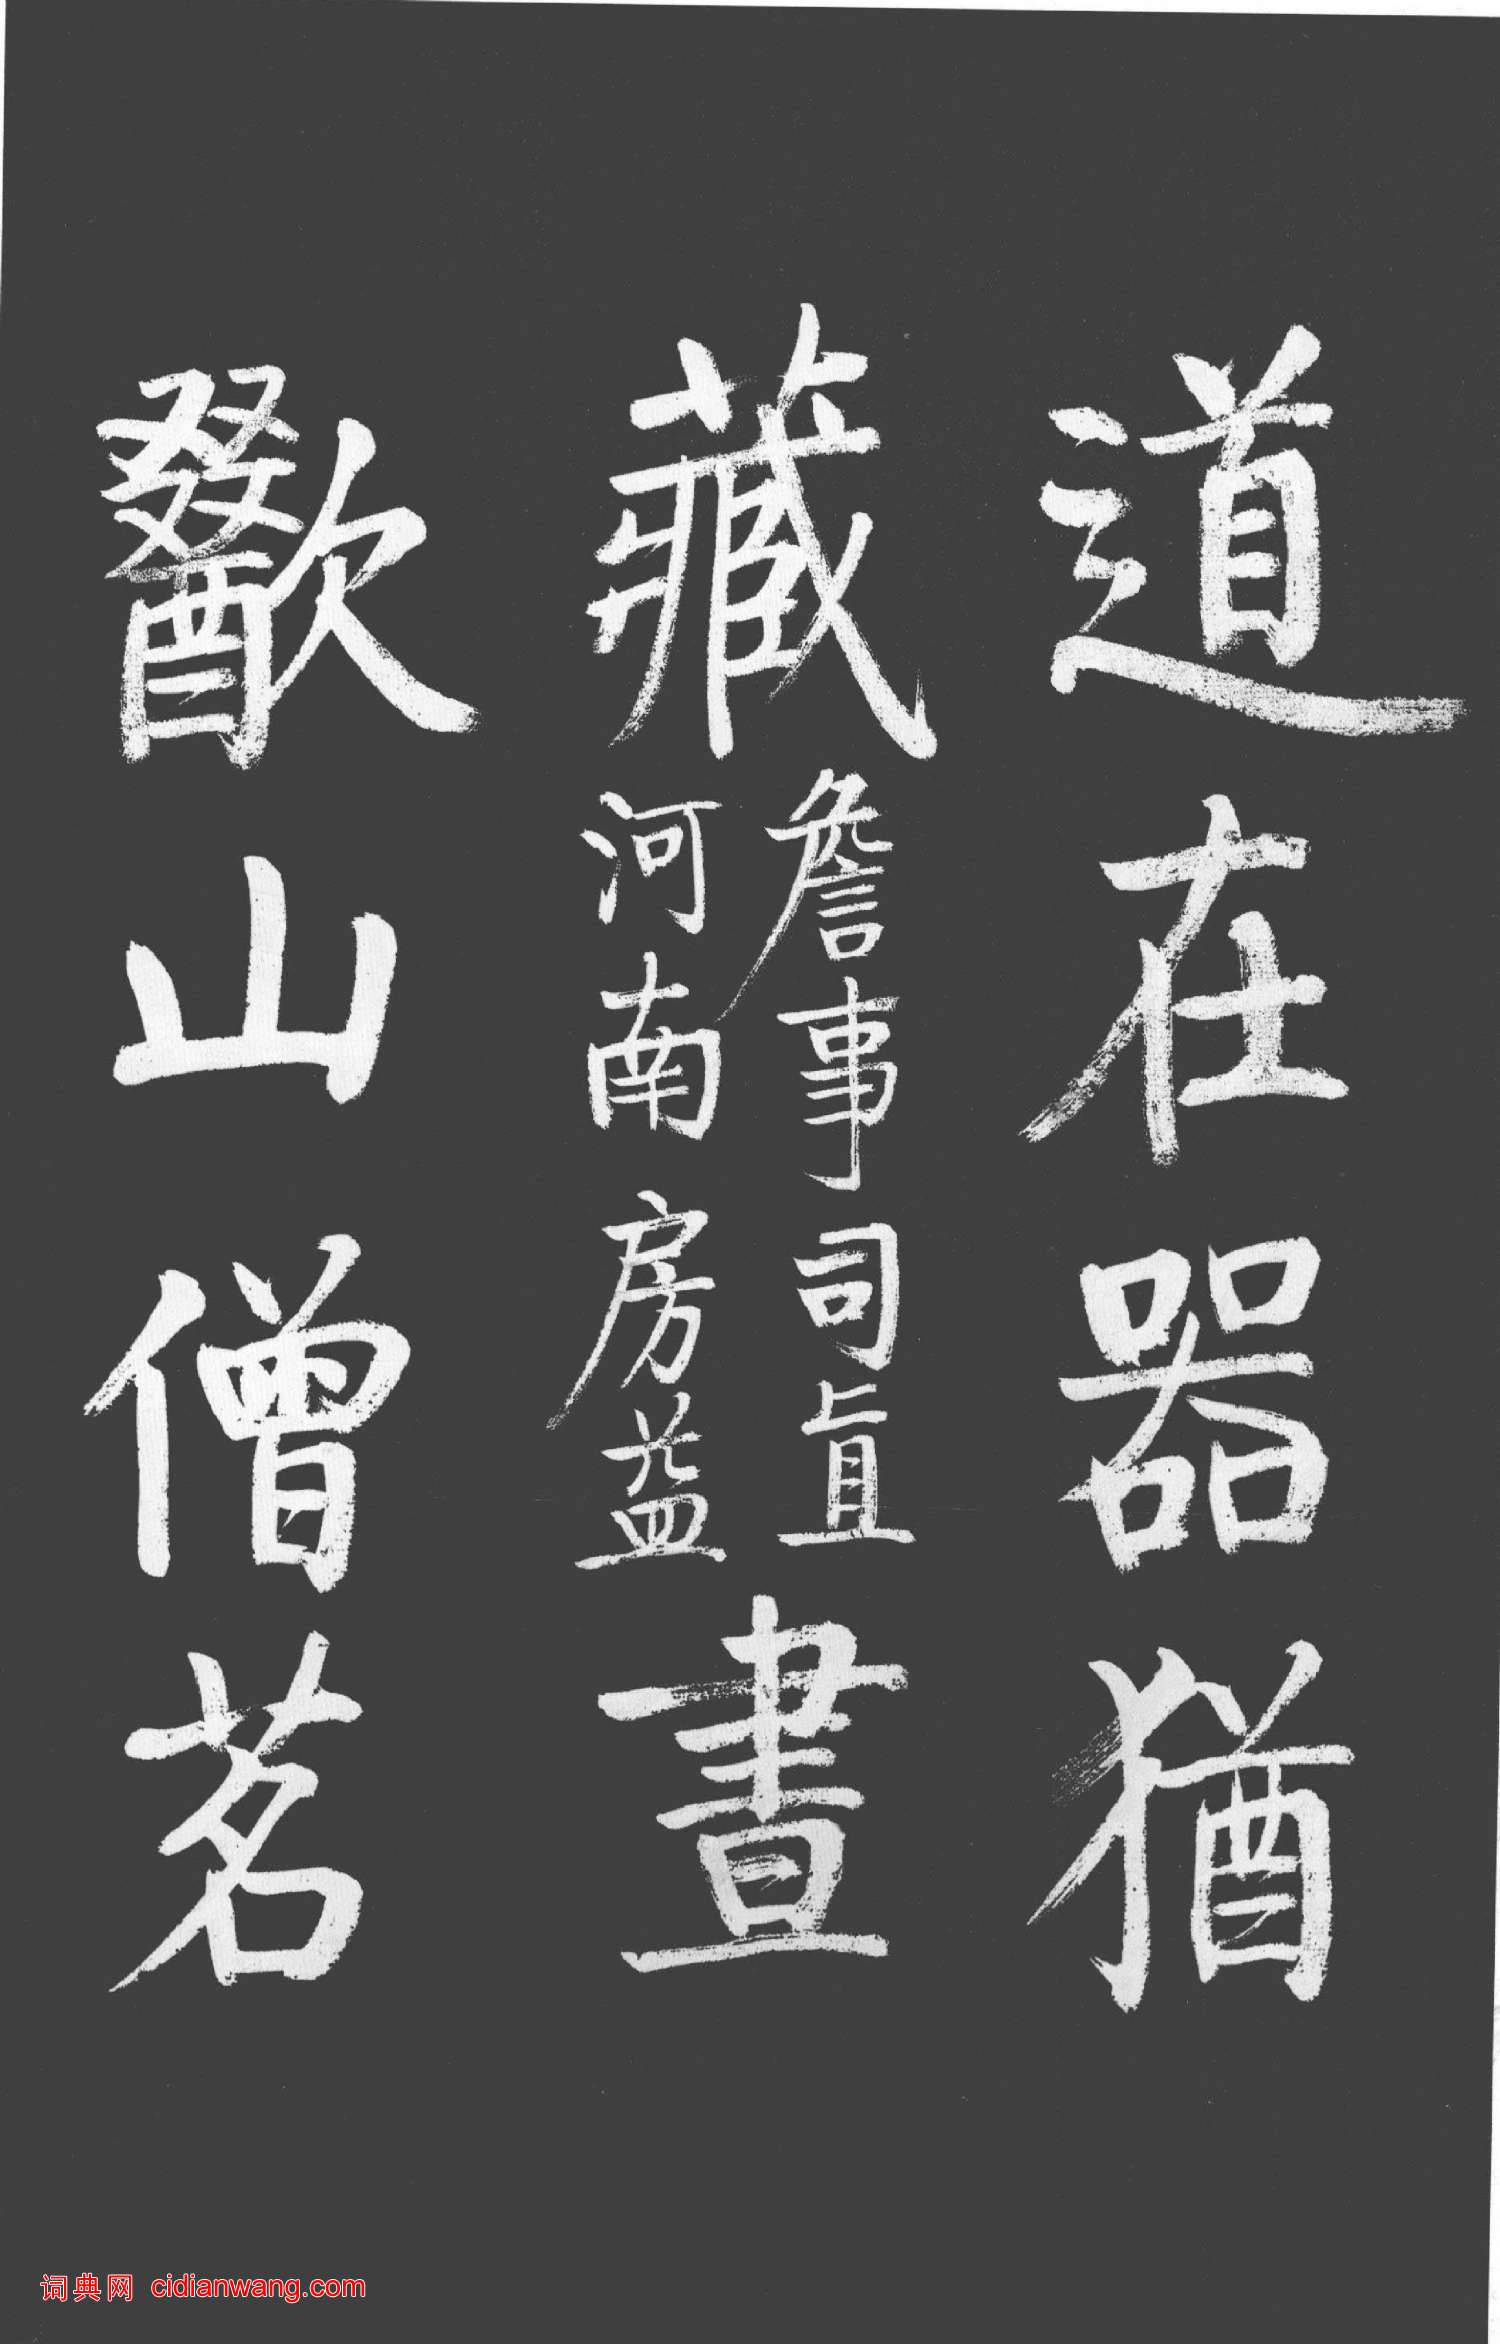 道在器猶
藏
詹事司直
河南房益
晝
歠山僧茗
词典网 cidianwang.com